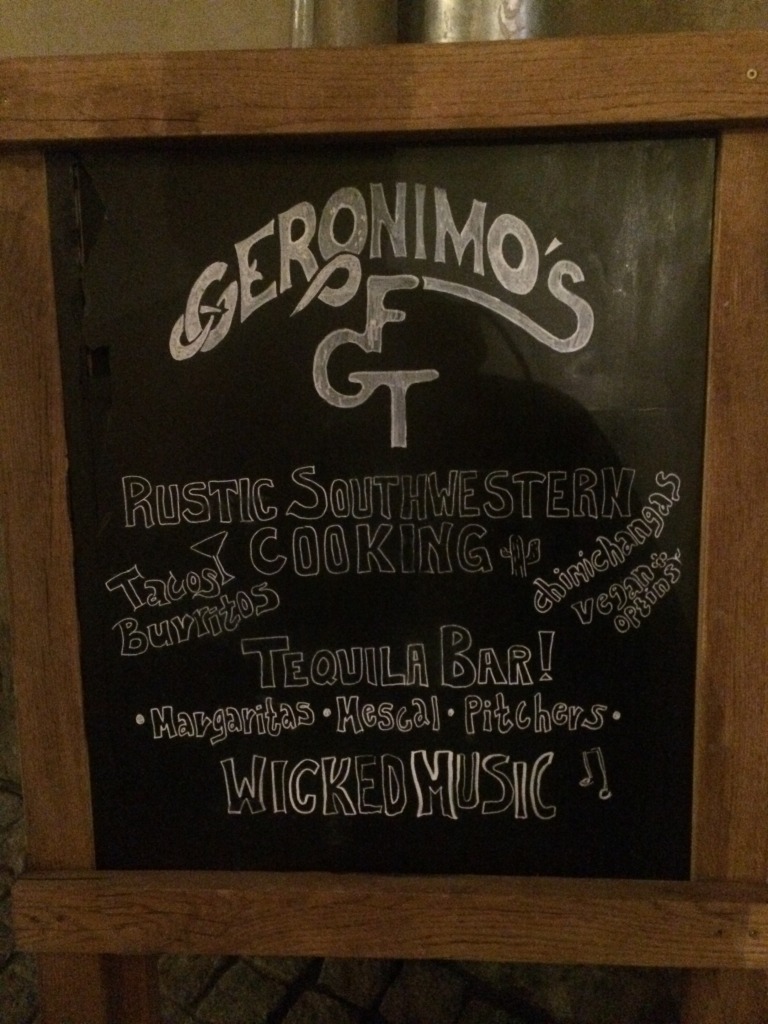 GERONIMO'S
F
GT
RUSTIC SOUTHWESTERN
COOKING
Tacos
Burritos
chimichangas
vegan
options
TEQUILA BAR!
• Margaritas • Mescal • Pitchers •
WICKED MUSIC